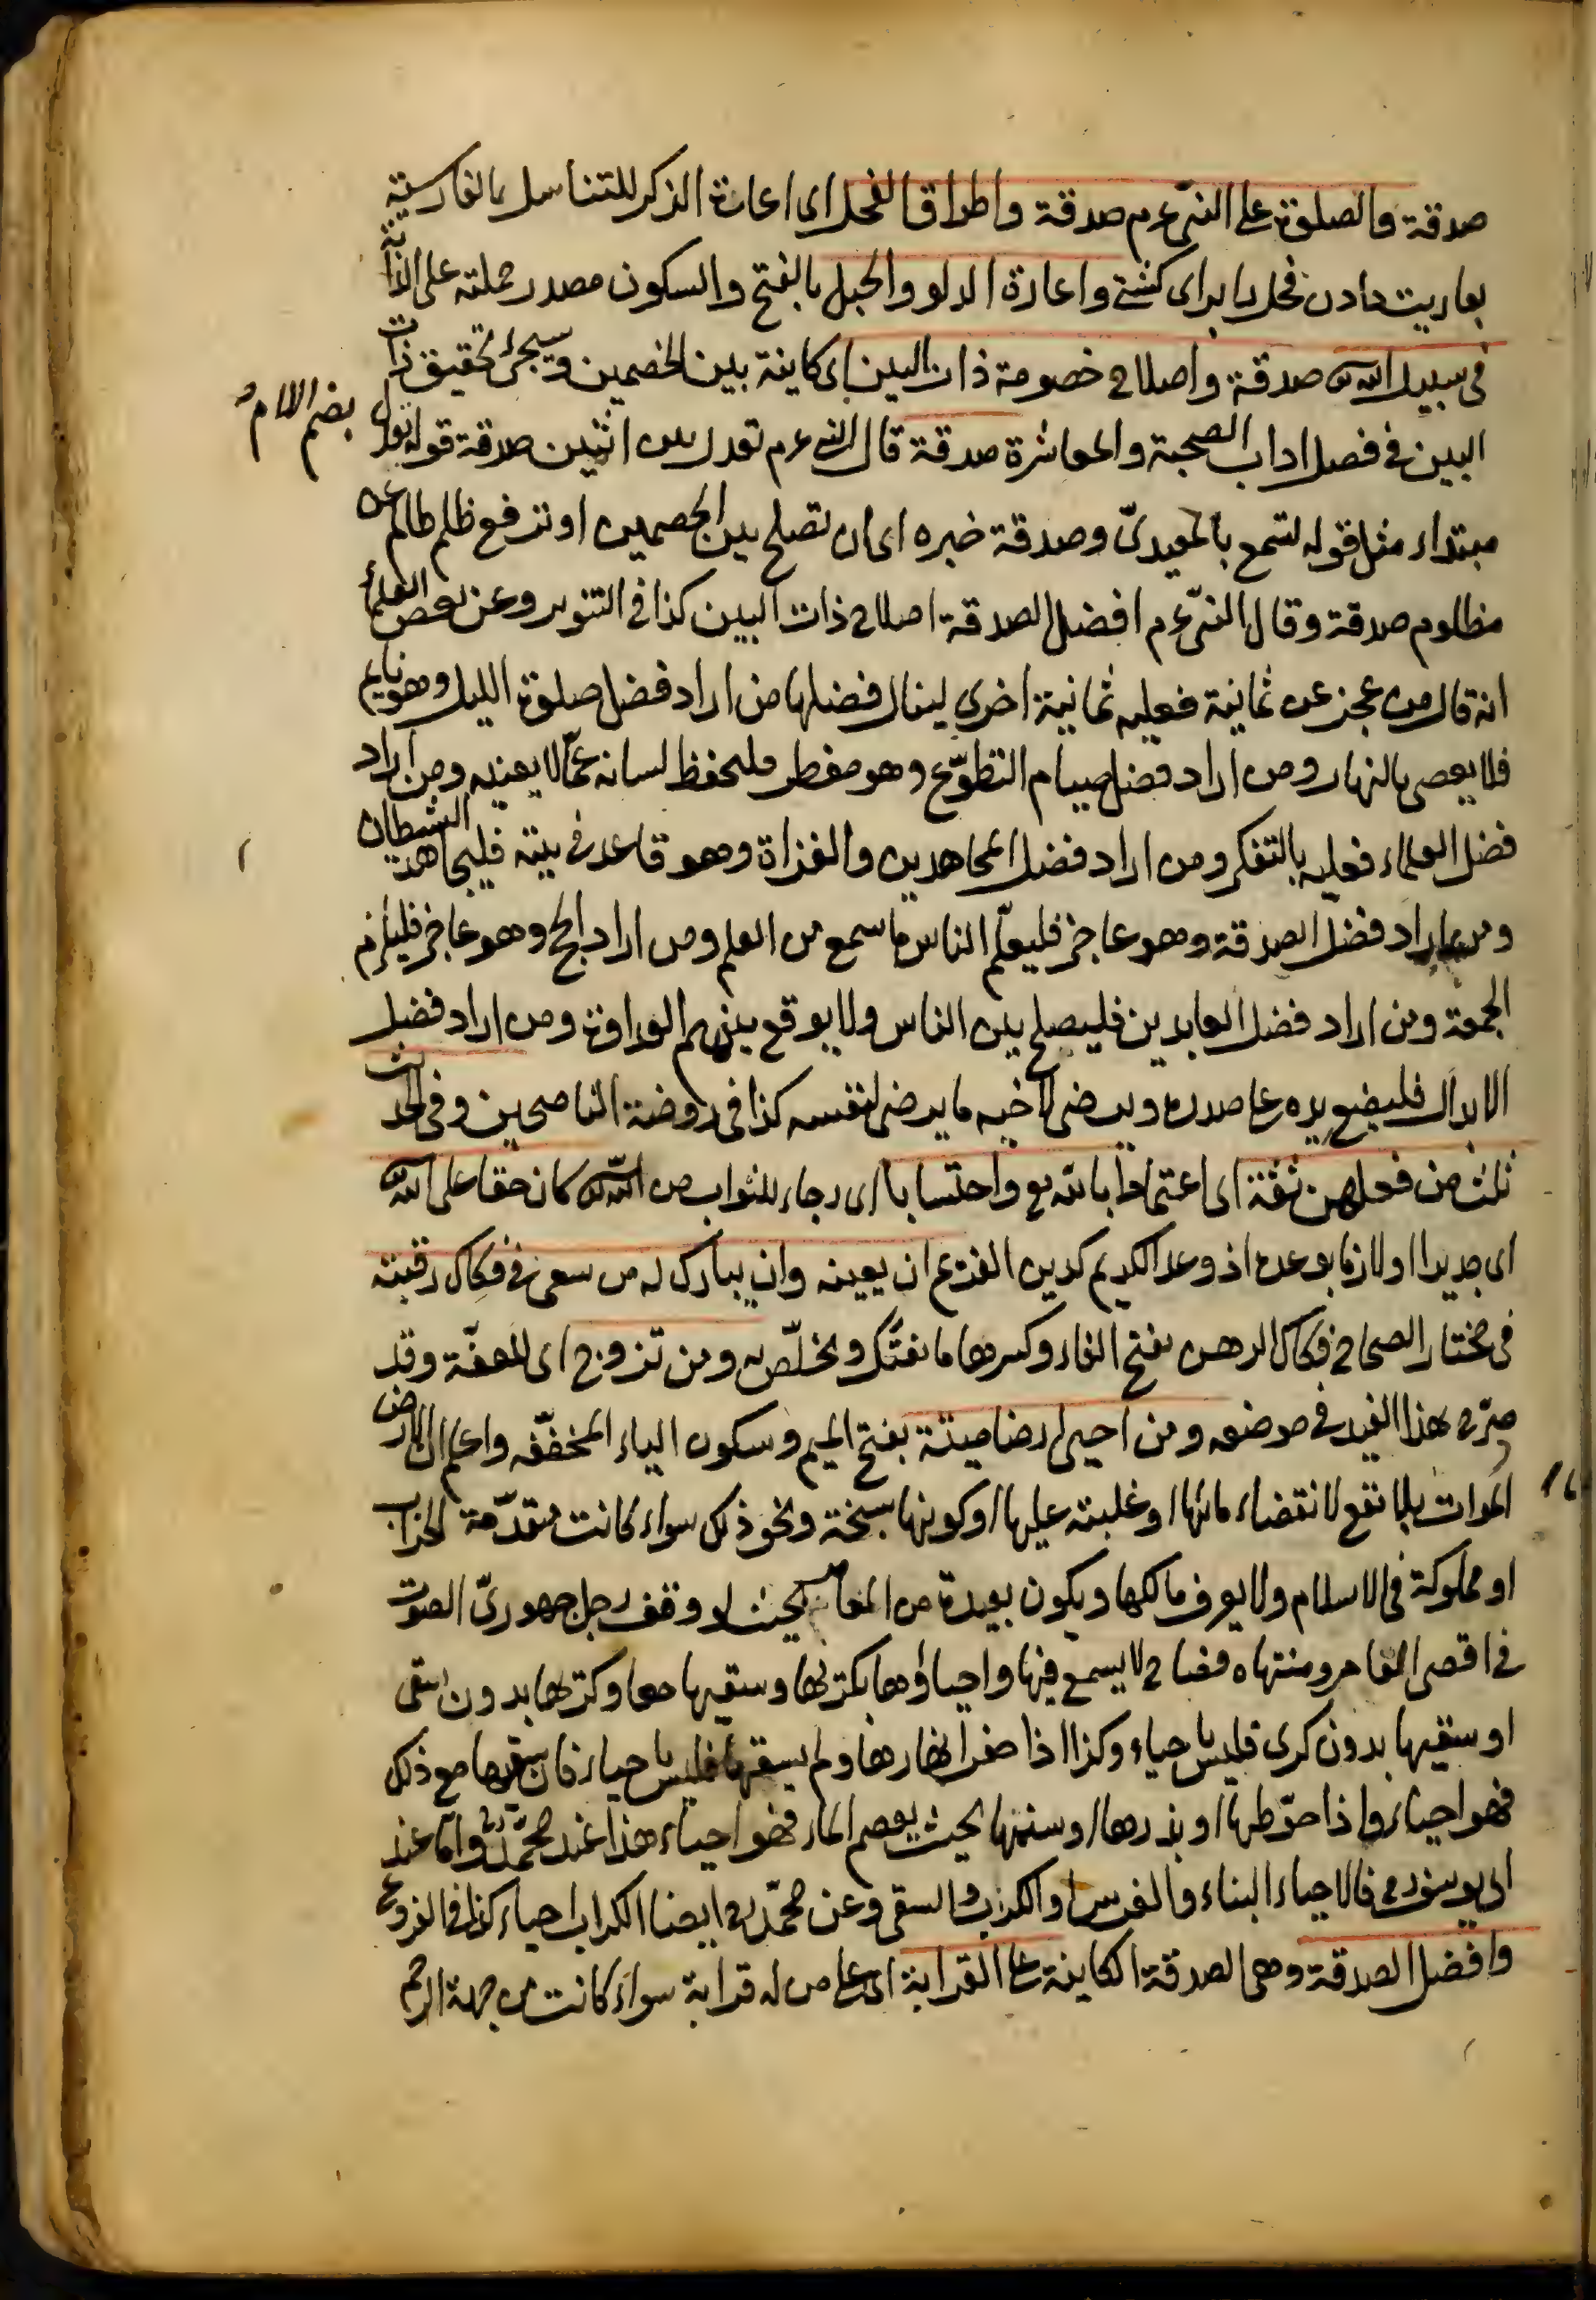 صدقة والصلوة على النبى عم صدقة واطراق الفحل اى اعارة الذكر للتناسل بالفارسية
بعاريت دادن فحل را براى كشنى واعارة الدلو والحبل بالفتح والسكون مصدر حملته على الدابة
فى سبيل الله تع صدقة واصلاح خصومة ذات البين اى كاينة بين الخصمين وسيجئ تحقيق ذات
البين فى فصل اداب الصحبة والمعاشرة صدقة قال النبى عم تعدل بين اثنين صدقة قوله تعدل
بضم اللام
مبتداء مثل قوله تسمع بالمعيدىّ وصدقة خبره اى ان تصلح بين الخصمين او تدفع ظلم ظالم عن
مظلوم صدقة وقال النبى عم افضل الصدقة اصلاح ذات البين كذا فى التنوير وعن بعض العلماء
انه قال من عجز عن ثمانية فعليه ثمانية اخرى لينال فضلها من اراد فضل صلوة الليل وهو نايم
فلا يعصى بالنهار ومن اراد فضل صيام التطوّع وهو مفطر فليحفظ لسانه عمّا لا يعنيه ومن اراد
فضل العلماء فعليه بالتفكر ومن اراد فضل المجاهدين والغزاة وهو قاعد فى بيته فليجاهد الشيطان
ومن اراد فضل الصدقة وهو عاجز فليعلّم الناس ما سمع من العلم ومن اراد الحج وهو عاجز فليلزم
الجمعة ومن اراد فضل العابدين فليصلح بين الناس ولا يوقع بينهم العداوة ومن اراد فضل
الابدال فليضع يده على صدره ويرضى لاخيه ما يرضى لنفسه كذا فى روضة الناصحين وفى الحديث
ثلث من فعلهن ثقة اى اعتمادا بالله تع واحتسابا اى رجاء للثواب من الله تع كان حقا على الله
اى جديرا او لازما بوعده اذ وعد الكريم كدين الغريم ان يعينه وان يبارك له من سعى فى فكاك رقبته
فى مختار الصحاح فكاك الرهن بفتح الفاء وكسرها ما يفتّك ويخلّص به ومن تزوج اى للعفّة وقد
صرّح بهذا القيد فى موضعه ومن احيى ارضا ميتة بفتح الميم وسكون الياء المخففة واعلم ان الارض
الموات بلا نفع لانقضاء مائها او غلبته عليها او كونها سبخة ونحو ذلك سواء كانت متقدّمة الخراب
او مملوكة فى الاسلام ولا يعرف مالكها ويكون بعيدة من العامر بحيث لو وقف رجل جهورىّ الصوت
فى اقصى العامر ومنتهاه فصاح لا يسمع فيها واحياؤها بكربها وسقيها معا وكربها بدون سقى
او سقيها بدون كرى فليس باحياء وكذا اذا حفر انهارها ولم يسقها فليس باحياء فان سقيها مع ذلك
فهو احياء واذا حوّطها او بذرها او سنمها بحيث يعصم الماء فهو احياء هذا عند محمّد رح وامّا عند
ابى يوسف رح فالاحياء البناء والغرس او الكراب والسقى وعن محمّد رح ايضا الكراب احياء كذا فى الفروع
وافضل الصدقة وهى الصدقة الكاينة على القرابة اى على من له قرابة سواء كانت من جهة الرحم